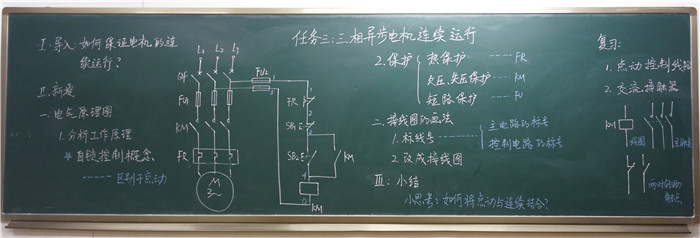 任务三:三相异步电机连续运行
I.导入:如何保证电机的连
续运行?
II.新授
一.电气原理图
1.分析工作原理
*自锁控制概念.
区别于点动
L1 L2 L3
QF
FU1
KM
FR
M
3~
FU2
1
2
3
4
0
FR
SB1 E
SB2 E
KM
KM
2.保护
热保护 FR
欠压.失压保护 KM
短路保护 FU
二.接线图的画法
1.标线号
主电路的标号
控制电路的标号
2.改成接线图
III.小结
小思考:如何将点动与连续结合?
复习:
1.点动控制线路
2.交流接触器
KM
线圈
主触点
两对辅助
触点